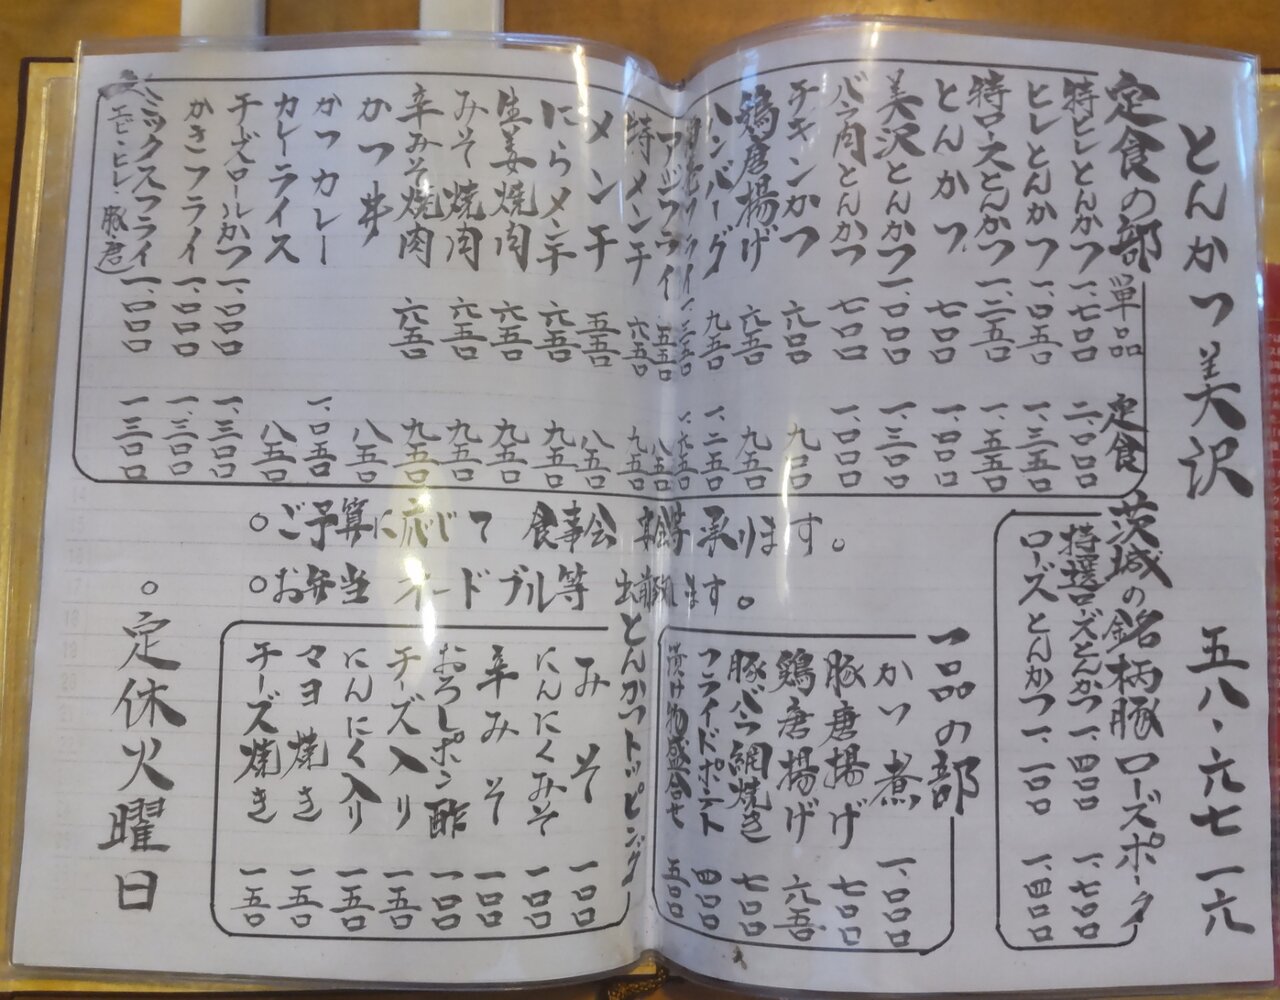 とんかつ美沢 五八・六七一六
定食の部 単品 定食
特ヒレとんかつ 一、七〇〇 二、〇〇〇
ヒレとんかつ 一、〇五〇 一、三五〇
特ロースとんかつ 一、二五〇 一、五五〇
とんかつ 七〇〇 一、〇〇〇
美沢とんかつ 一、〇〇〇 一、三〇〇
バラ肉とんかつ 七〇〇 一、〇〇〇
チキンかつ 六〇〇 九〇〇
鶏唐揚げ 六五〇 九五〇
ハンバーグ 九五〇 一、二五〇
フライ 一、三五〇 一、六五〇
アジフライ 五五〇 八五〇
特メンチ 六五〇 九五〇
メンチ 五五〇 八五〇
にらメンチ 六五〇 九五〇
生姜焼肉 六五〇 九五〇
みそ焼肉 六五〇 九五〇
辛みそ焼肉 六五〇 九五〇
かつ丼 八五〇
かつカレー 一、〇五〇
カレーライス 八五〇
チーズロールかつ 一、〇〇〇 一、三〇〇
かきフライ 一、〇〇〇 一、三〇〇
ミックスフライ 一、〇〇〇 一、三〇〇
(エビ・ヒレ・豚君)
茨城の銘柄豚 ローズポーク
特選ローズとんかつ 一、四〇〇 一、七〇〇
ローズとんかつ 一、一〇〇 一、四〇〇
○ご予算に応じて 食事会 宴会等 承ります。
○お弁当 オードブル等 出前致します。
一品の部
かつ煮 一、〇〇〇
豚唐揚げ 七〇〇
鶏唐揚げ 六五〇
豚バラ網焼き 七〇〇
フライドポテト 四〇〇
漬け物盛合せ 五〇〇
とんかつトッピング
みそ 一〇〇
にんにくみそ 一〇〇
辛みそ 一〇〇
おろしポン酢 一〇〇
チーズ入り 一五〇
にんにく入り 一五〇
マヨ焼き 一五〇
チーズ焼き 一五〇
○定休火曜日